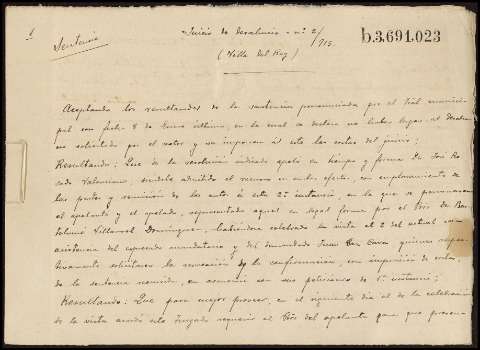 Sentencia
Juicio de desahucio - nº 2/915.
(Villa del Rey)
b.3.691.023
Aceptando los resultandos de la sentencia pronunciada por el Trial munici-
pal con fecha 8 de Enero último, en la cual se declara no haber lugar al desahu-
cio solicitado por el actor y se imponen á este las costas del juicio;
Resultando: Que de la resolución indicada apeló en tiempo y forma Dn José
Valeriano, siendole admitido el recurso en ambos efectos, con emplazamiento de
las partes y remisión de los autos á esta 2ª instancia, en la que se personaron
el apelante y el apelado, representado aquel en legal forma por el Dn Bar-
tolomé Villarroel Dominguez, habiendose celebrado la vista el 2 del actual con
asistencia del expresado mandatario y del demandado Juan quienes respec-
tivamente solicitaron la revocación y la confirmación, con imposición de costas,
de la sentencia recurrida, en armonía con sus peticiones de 1ª instancia;
Resultando: Que para mejor proveer, en el siguiente día al de la celebración
de la vista acordó este Juzgado requerir al del apelante para que presen